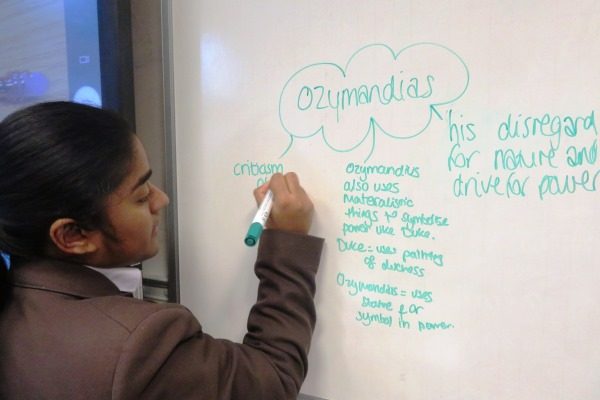 Ozymandias
his disregard
for nature and
drive for power
critiasm
of
Ozymandius
also uses
Materalismic
things to symbolise
power like Duke.
Duke = uses painting
of duchess
Ozymandias = uses
Statue for
symbol in power.